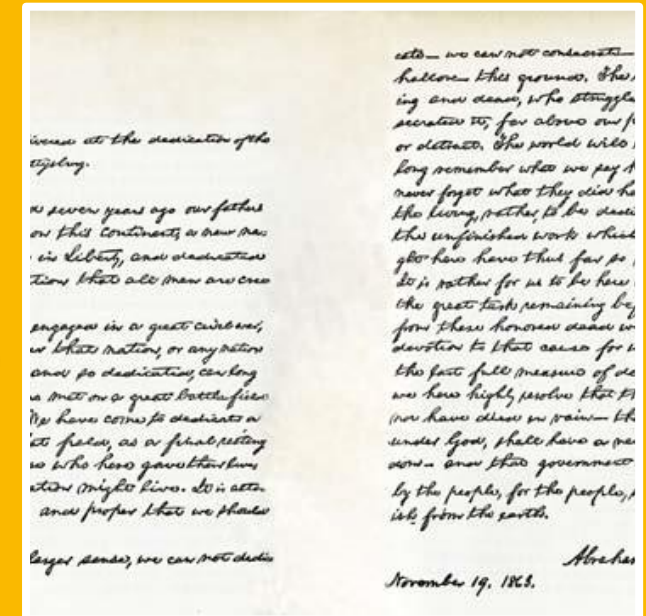 ivered at the dedication of the
ttysburg.
seven years ago our fathers
on this continent, a new na-
in Liberty, and dedicated
tion that all men are crea
engaged in a great civil war,
that nation, or any nation
and so dedicated, can long
met on a great battle-field
We have come to dedicate a
at field, as a final resting
who here gave their lives
ation might live. It is alto-
and proper that we should
larger sense, we can not dedic
cate— we can not consecrate—
hallow— this ground. The
ing and dead, who struggle
secrated it, far above our p
or detract. The world will
long remember what we say h
never forget what they did he
the living, rather, to be dedic
the unfinished work which
ght here have thus far so
It is rather for us to be here
the great task remaining bef
from these honored dead w
devotion to that cause for w
the last full measure of de
we here highly resolve that th
not have died in vain— th
under God, shall have a ne
dom— and that government
by the people, for the people, s
ish from the earth.
Abraham
November 19, 1863.